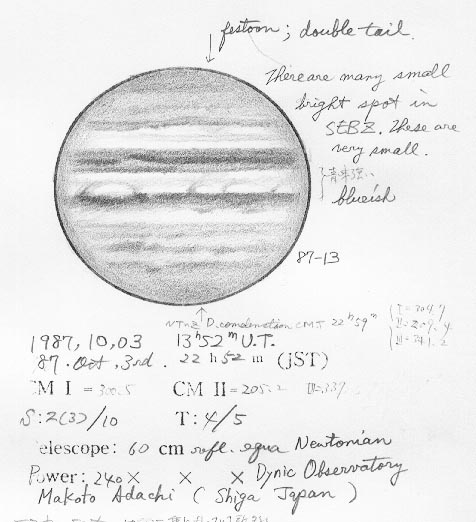 festoon; double tail.
There are many small
bright spot in
SEBZ. These are
very small.
青味強い
blueish
87-13
NTrZ D. comdensation CMI 22h 59m
I = 304.7
II = 209.4
III = 341.2
1987, 10, 03 13h 52m U.T.
'87. Oct, 3rd. 22 h 52 m (JST)
CM I = 300.5 CM II = 205.2 III=337
S: 2(3)/10 T: 4/5
elescope: 60 cm refl. equa Newtonian
Power: 240 × × × Dynic Observatory
Makoto Adachi ( Shiga Japan )